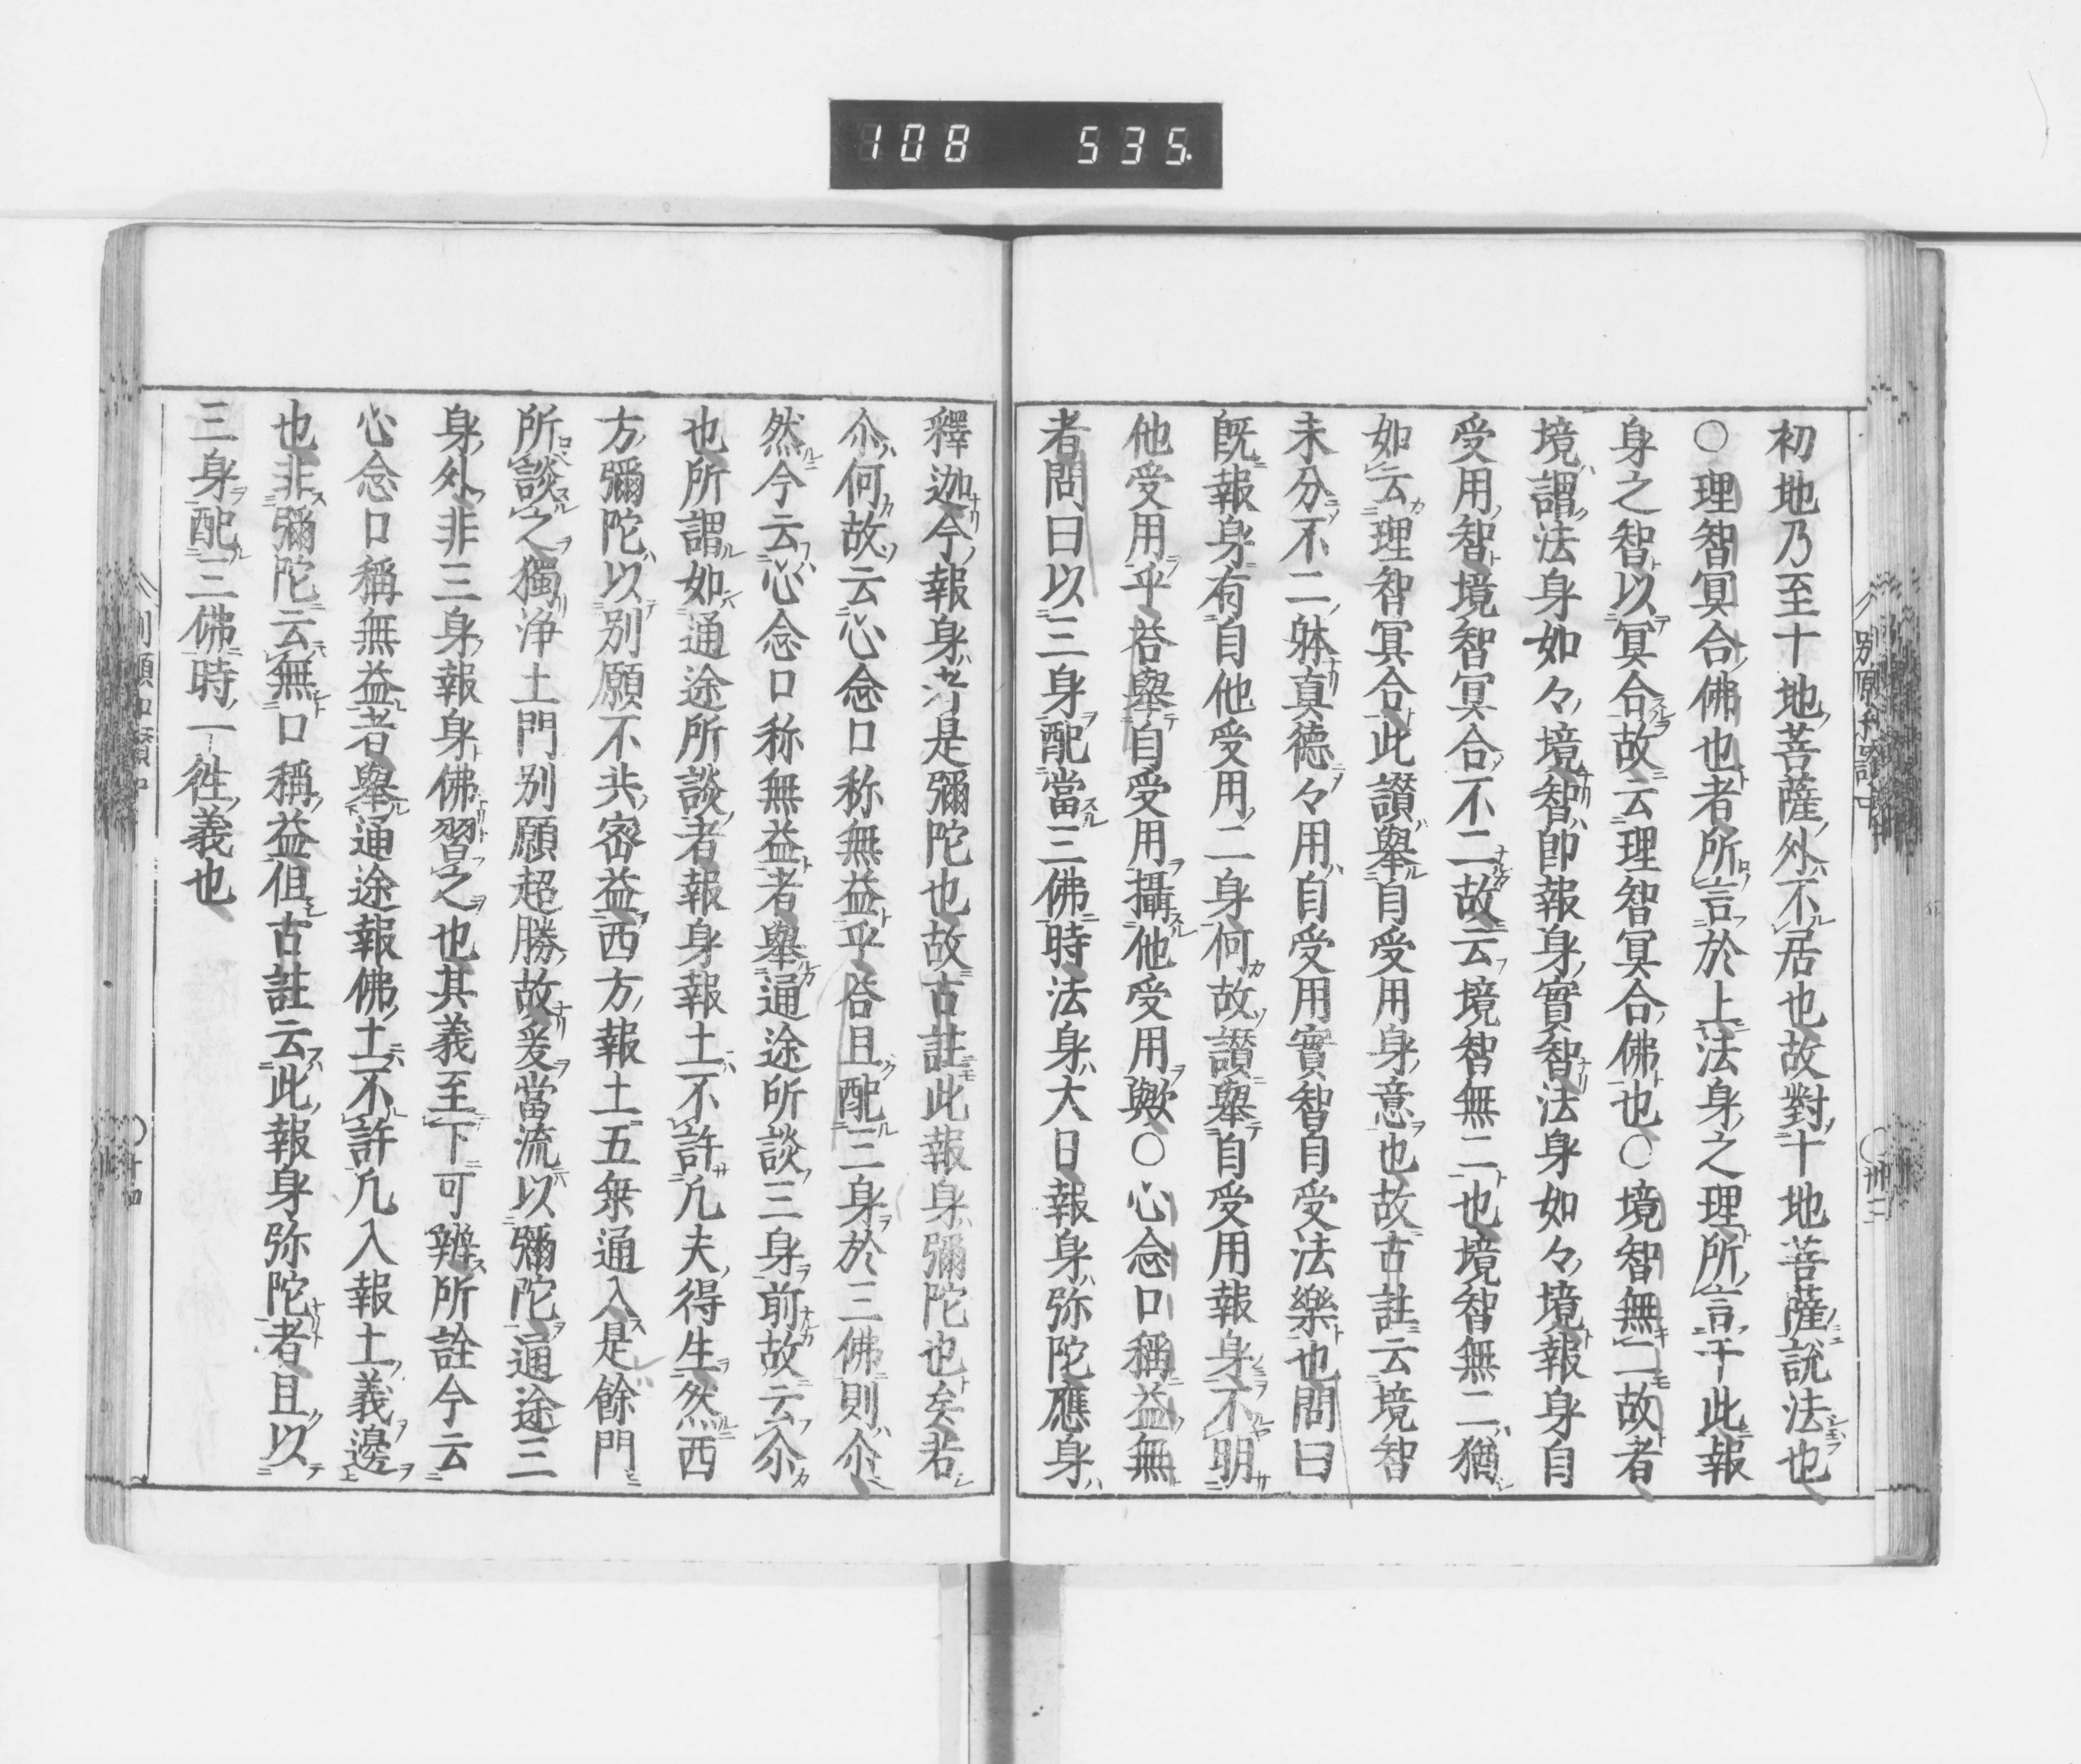 108 535.
初地乃至十地菩薩外不居也故對十地菩薩説法也
○理智冥合佛也者所言於上法身之理所言于此報
身之智以冥合故云理智冥合佛也○境智無二故者
境謂法身如々境智即報身實智法身如々境報身自
受用智境智冥合不二故云境智無二也境智無二猶
如云理智冥合此讃擧自受用身意也故古註云境智
未分不二躰真徳々用自受用實智自受法樂也問曰
既報身有自他受用二身何故讃擧自受用報身不明
他受用乎荅擧自受用攝他受用歟○心念口稱益無
者問曰以三身配當三佛時法身大日報身弥陀應身
釋迦今報身者是彌陀也故古註此報身彌陀也矣若
尒何故云心念口称無益乎荅且配三身於三佛則尒
然今云心念口称無益者擧通途所談三身前故云尒
也所謂如通途所談者報身報土不許凡夫得生然西
方彌陀以別願不共密益西方報土五乗通入是餘門
所談之獨浄土門別願超勝故爰當流以彌陀通途三
身外非三身報身佛習之也其義至下可辨所詮今云
心念口稱無益者擧通途報佛土不許凡入報土義邊
也非彌陀云無口稱益但古註云此報身弥陀者且以
三身配三佛時一徃義也